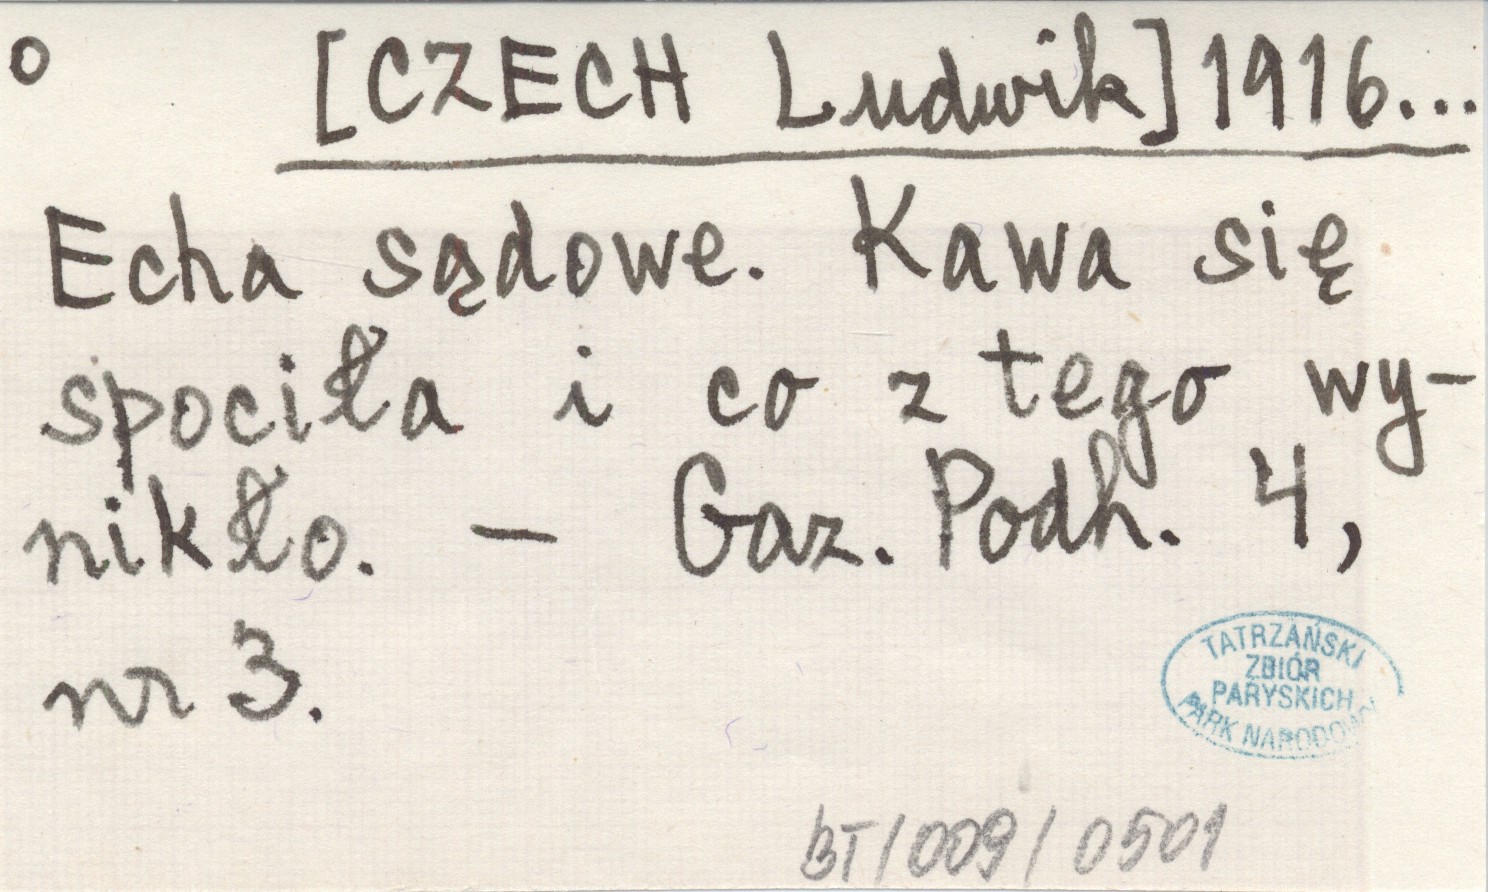 o [CZECH Ludwik] 1916...
Echa sądowe. Kawa się
spociła i co z tego wy-
nikło. - Gaz. Podh. 4,
nr 3.
TATRZAŃSKI
ZBIÓR
PARYSKICH
PARK NARODOWY
BT/009/0501